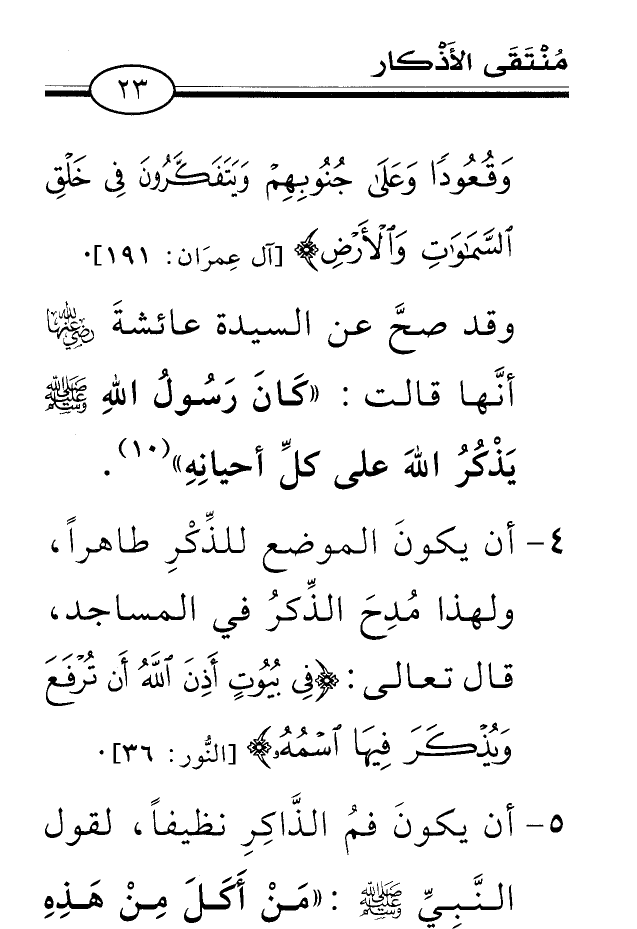 مُنْتَقَى الأَذْكار
٢٣
وَقُعُودًا وَعَلَىٰ جُنُوبِهِمْ وَيَتَفَكَّرُونَ فِى خَلْقِ
ٱلسَّمَٰوَٰتِ وَٱلْأَرْضِ﴾ [آل عِمرَان: ١٩١].
وقد صحَّ عن السيدة عائشةَ رضي الله عنها
أنَّها قالت: «كَانَ رَسُولُ اللهِ ﷺ
يَذْكُرُ اللهَ على كلِّ أحيانِهِ»(١٠).
٤- أن يكونَ الموضع للذِّكْرِ طاهراً،
ولهذا مُدِحَ الذِّكرُ في المساجد،
قال تعالى: ﴿فِى بُيُوتٍ أَذِنَ ٱللَّهُ أَن تُرْفَعَ
وَيُذْكَرَ فِيهَا ٱسْمُهُۥ﴾ [النُّور: ٣٦].
٥- أن يكونَ فمُ الذَّاكِرِ نظيفاً، لقول
النَّبِيِّ ﷺ: «مَنْ أَكَلَ مِنْ هَذِهِ